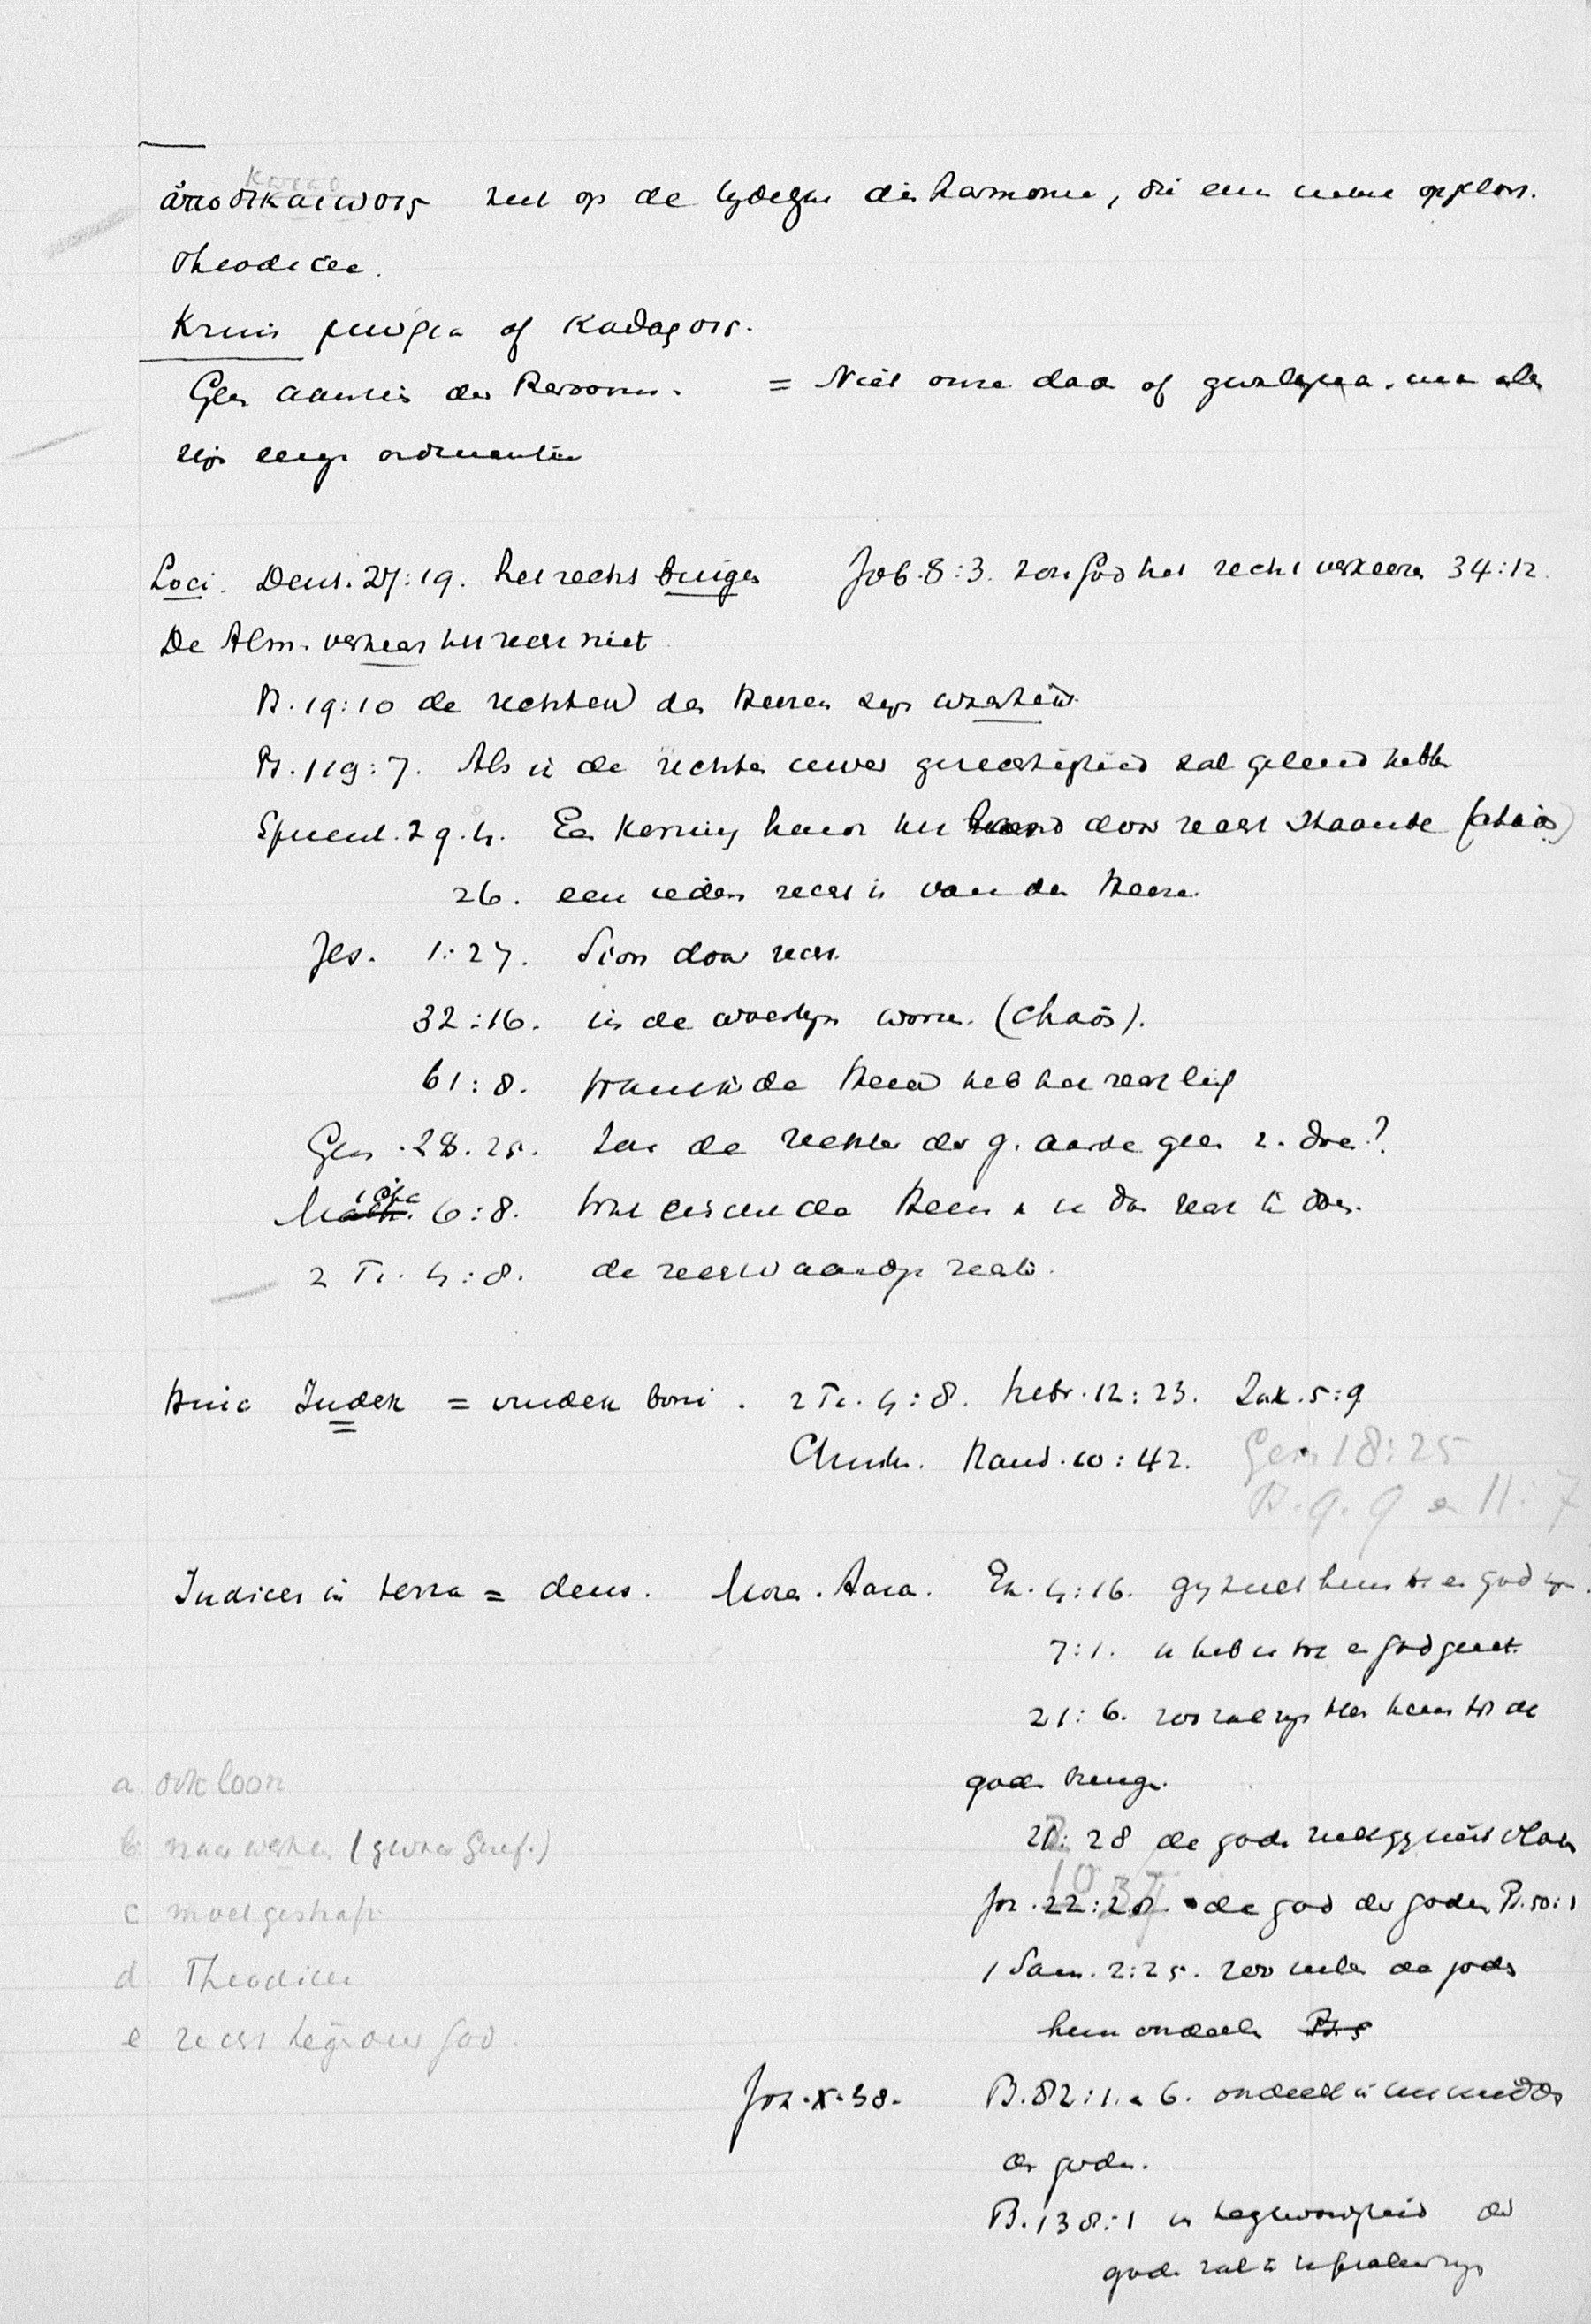 ἀποδικαίωσις ziet op de tydelyke disharmonie, die een keer oplost.
Theodicee.
Kruis μωρία of καθαρσις.
Geen aannis der Persoons. = Niet onze daa of
zijn eeuge ordinantie
Loci. Deut. 27:19. het recht buigen Job. 8:3. zou God het recht verkeeren 34:12.
De Alm. verkeert het recht niet
Ps. 19:10 de rechten des Heeren zijn waarheid.
Ps. 119:7. Als ik de rechten uwer gerechtigheid zal geleerd hebben
Spreuk. 29.4. Een Koning houdt het land door recht staande (chaos)
26. een ieders recht is van den Heere.
Jes. 1:27. Sion door recht.
32:16. in de woestijn wone. (chaös).
61:8. want ik de Heere heb het recht lief
Gen. 28.25. Zou de rechter der g. aarde geen r. doen?
Micha 6:8. Wat eischt de Heere v. u dan recht te doen.
2 Ti. 4:8. de rechtvaardige rechter.
Hinc Judex = vindex boni. 2 Ti. 4:8. Hebr. 12:23. Jak. 5:9
Christus. Hand. 10:42. Gen 18:25
Ps. 9. 9 en 11:7
Judices in terra = deus. Mozes. Aaron. Ex. 4:16. gy zult hem tot een god zijn.
7:1. ik heb u tot een god gezet.
21:6. zoo zal zijn heer hem tot de
goden brengen.
22:28 de goden zult gy niet vloeken
a ook loon
b naar werken (gewone straf.)
Joz. 22:22. de god der goden Ps. 50:1
c moet gestraft
1 Sam. 2:25. zoo zullen de goden
d Theodicee
hem oordeelen Ps
e recht tegenover God.
Joh. X. 38. Ps. 82:1. en 6. oordeelt in het midden
der goden.
Ps. 138:1 in tegenwoordigheid der
goden zal ik u psalmzingen